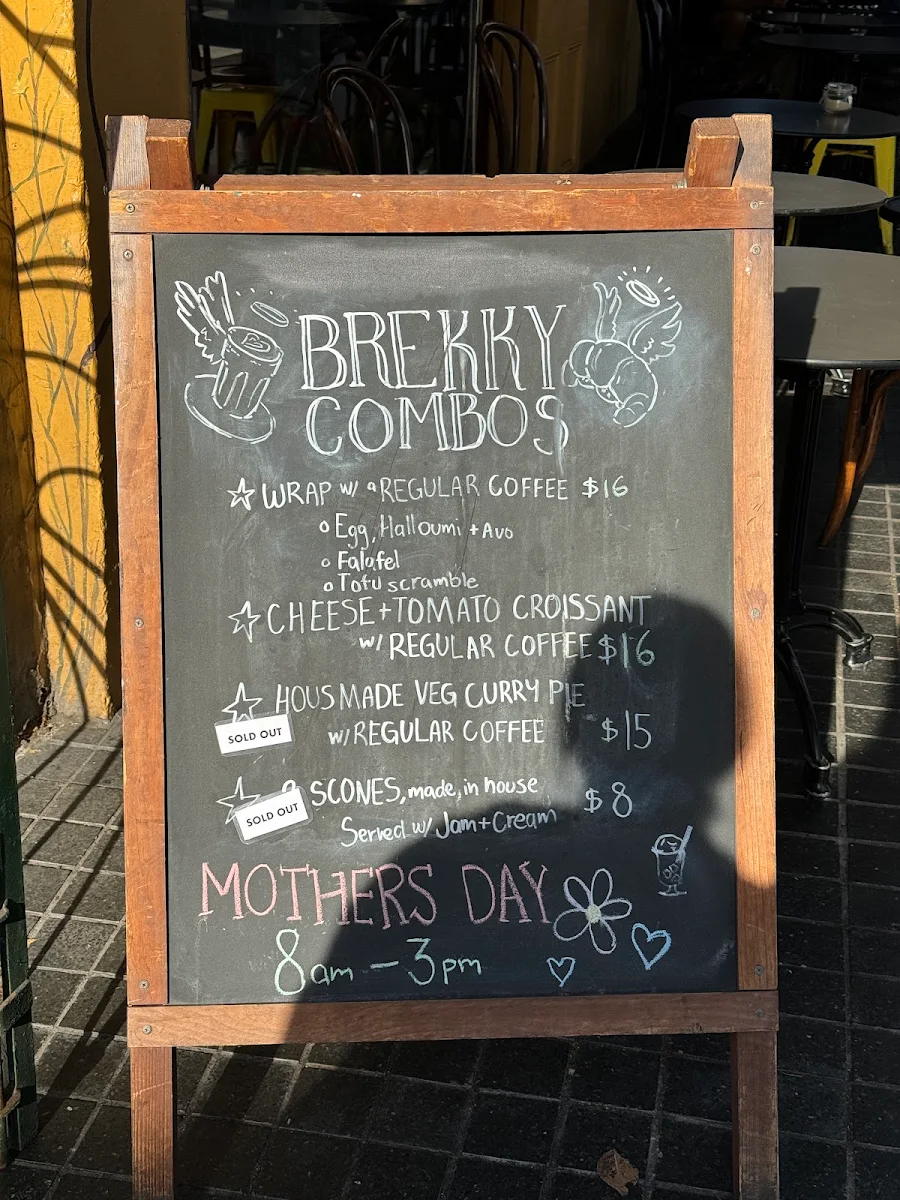 BREKKY
COMBOS
WRAP w/ a REGULAR COFFEE $16
Egg, Halloumi + Avo
Falafel
Tofu scramble
CHEESE + TOMATO CROISSANT
w/ REGULAR COFFEE $16
HOUS MADE VEG CURRY PIE
SOLD OUT w/ REGULAR COFFEE $15
SCONES, made, in house $8
SOLD OUT Served w/ Jam + Cream
MOTHERS DAY
8am – 3pm